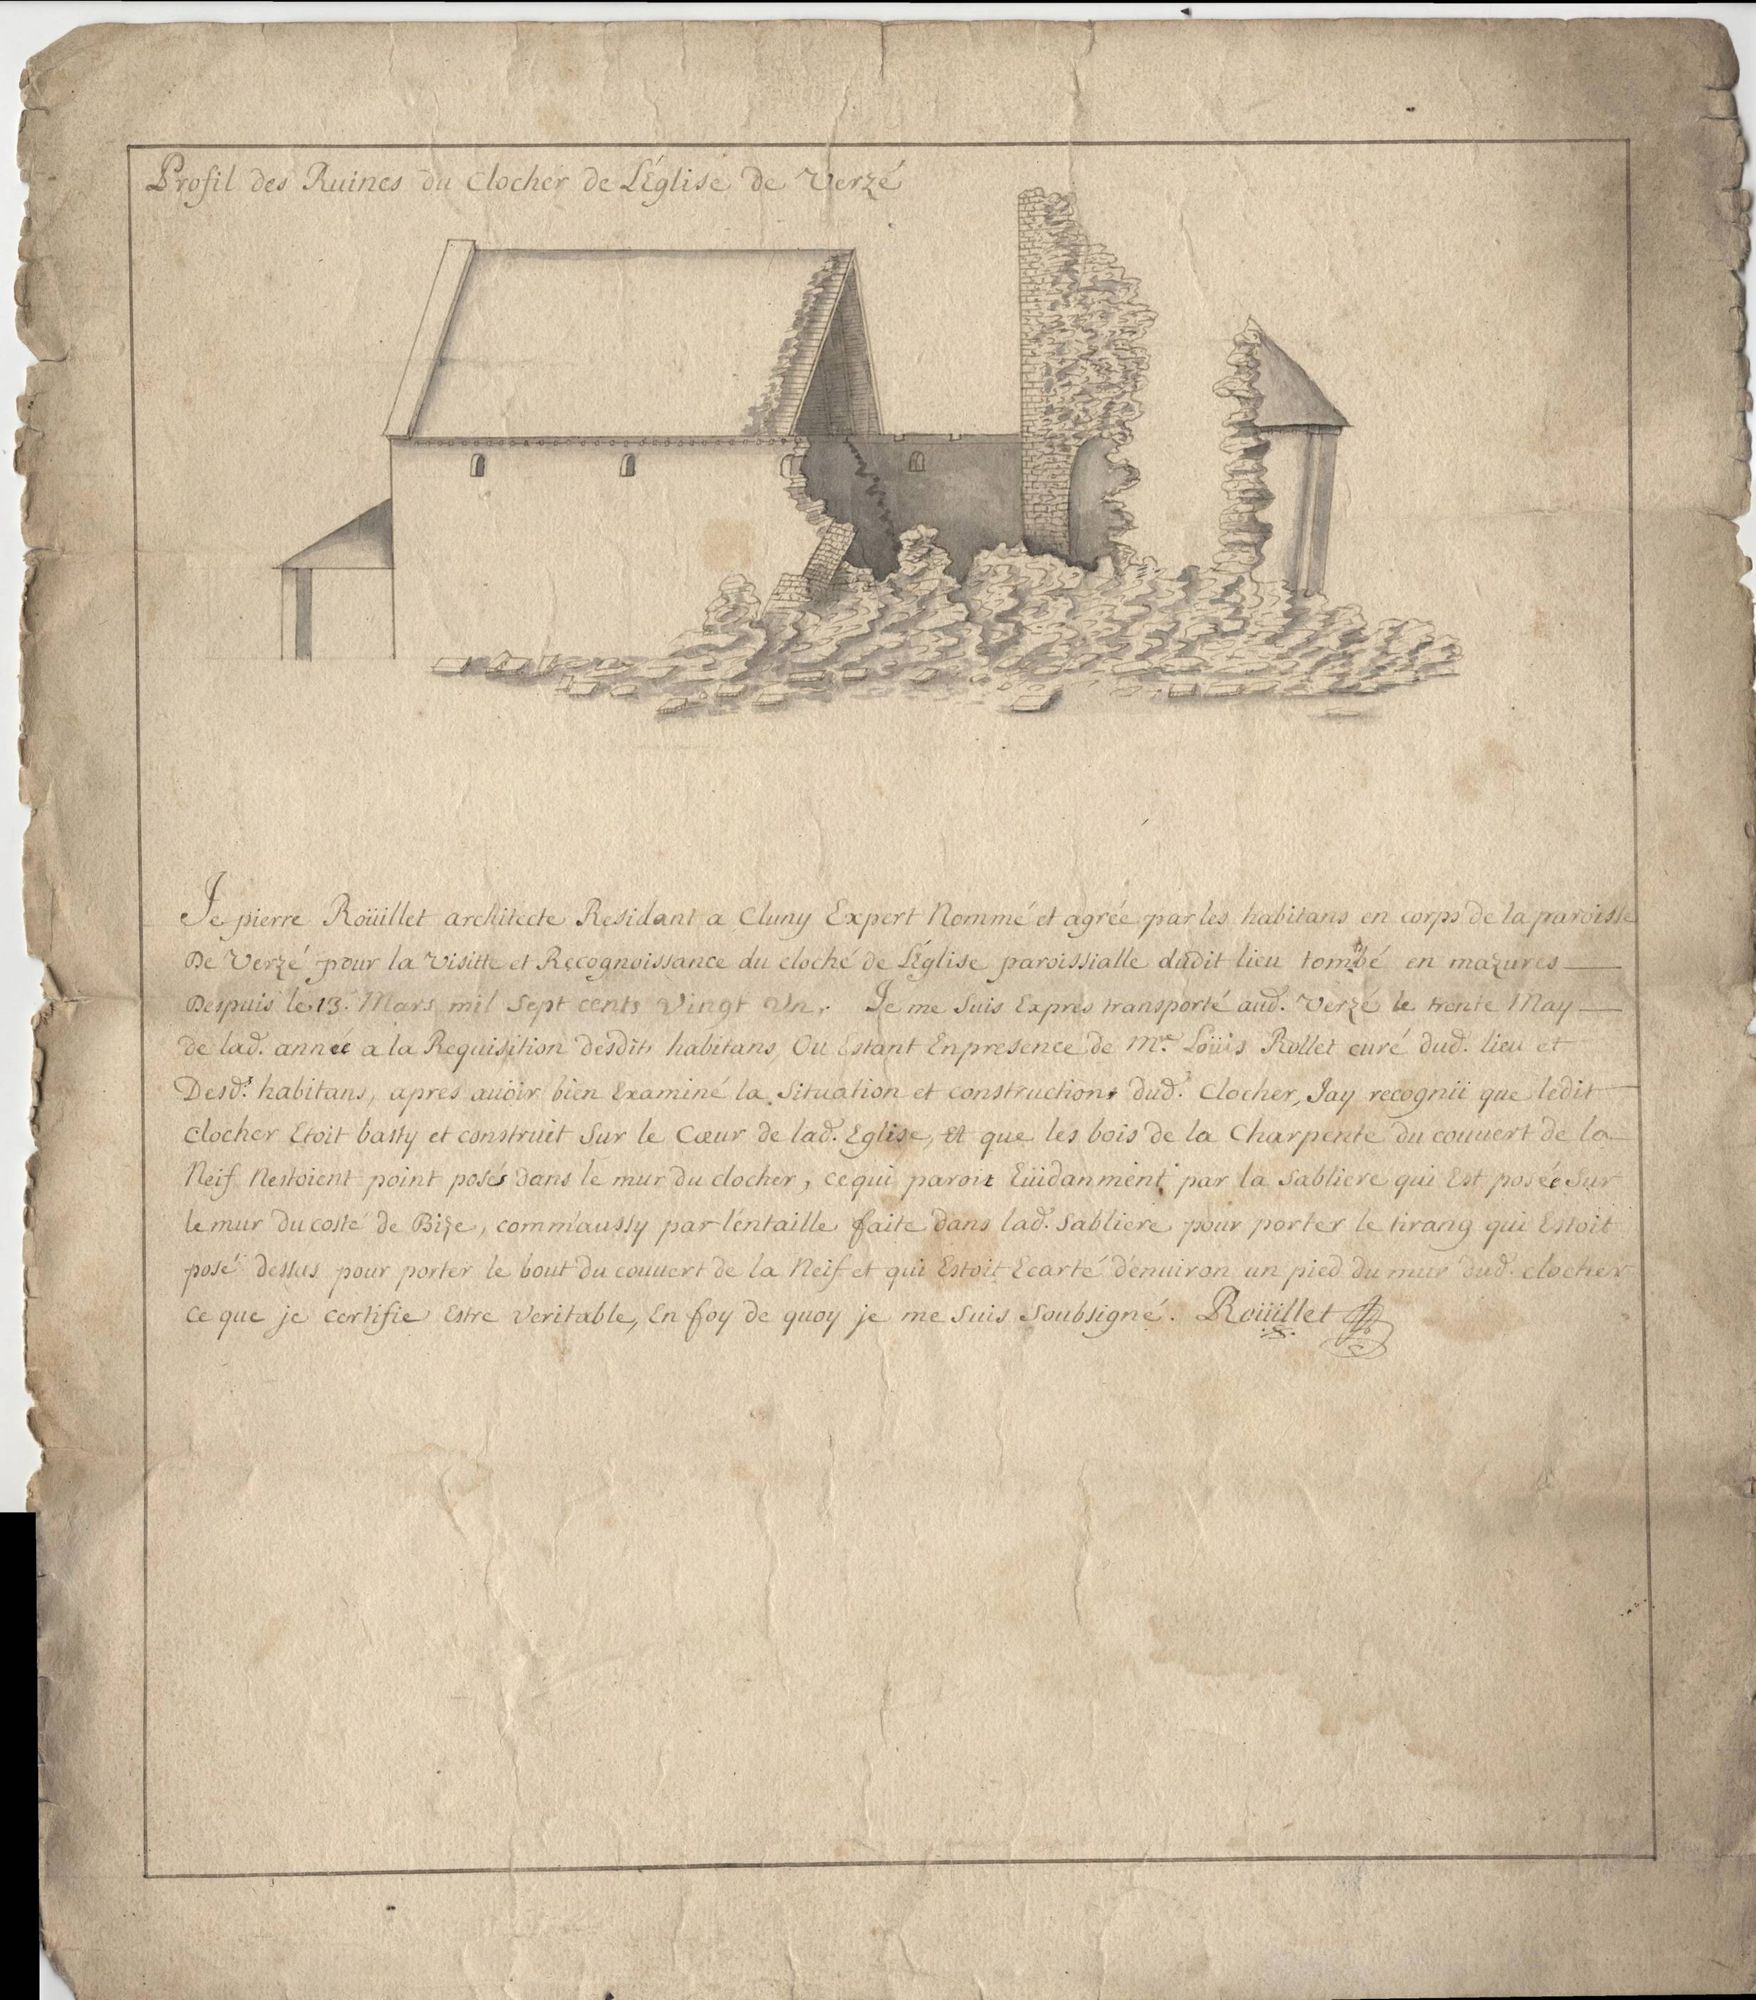 Profil des Ruines du Clocher de L'Église de Verzé
Je pierre Roüillet architecte Residant a Cluny Expert Nommé et agrée par les habitans en corps de la paroisse
De Verzé pour la Visitte et Recognoissance du cloché de L'Église paroissialle dudit lieu tombé en mazures
Despuis le 13. Mars mil Sept cents Vingt Un. Je me Suis Exprès transporté aud. Verzé le trente May
de lad. année a la Requisition desdits habitans, Ou Estant Enpresence de Mre. Loüis Rollet curé dud. lieu et
Desd.s habitans, apres auoir bien Examiné la Situation et constructions dud. Clocher, Jay recognü que ledit
Clocher Etoit basty et construit Sur le Cœur de lad. Eglise, et que les bois de la Charpente du couuert de la
Neif Nestoient point posés dans le mur du clocher, cequi paroit Euidanment par la Sabliere qui Est posée Sur
le mur du costé de Bize, comm'aussy par l'entaille faite dans lad. Sabliere pour porter le tirang qui Estoit
posé dessus pour porter le bout du couuert de la Neif et qui Estoit Ecarté d'enuiron un pied du mur dud. clocher
Ce que je certifie Estre Veritable, En foy de quoy je me Suis Soubsigné. Roüillet